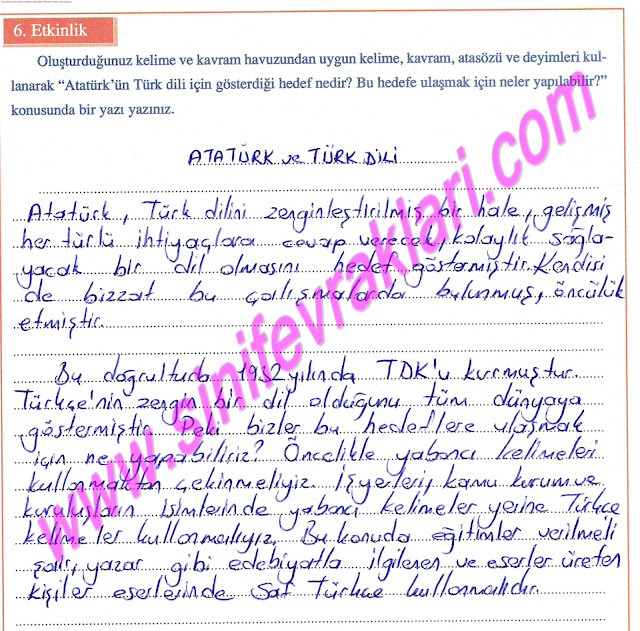 6. Etkinlik
Oluşturduğunuz kelime ve kavram havuzundan uygun kelime, kavram, atasözü ve deyimleri kul-
lanarak “Atatürk’ün Türk dili için gösterdiği hedef nedir? Bu hedefe ulaşmak için neler yapılabilir?”
konusunda bir yazı yazınız.
ATATÜRK ve TÜRK DİLİ
Atatürk, Türk dilini zenginleştirilmiş bir hale, gelişmiş
her türlü ihtiyaçlara cevap verecek, kolaylık sağla-
yacak bir dil olmasını hedef göstermiştir. Kendisi
de bizzat bu çalışmalarda bulunmuş, öncülük
etmiştir.
Bu doğrultuda 1932 yılında TDK'u kurmuştur.
Türkçe'nin zengin bir dil olduğunu tüm dünyaya
göstermiştir. Peki bizler bu hedeflere ulaşmak
için ne yapabiliriz? Öncelikle yabancı kelimeleri
kullanmaktan çekinmeliyiz. İşyerleri, kamu kurum ve
kuruluşların isimlerinde yabancı kelimeler yerine Türkçe
kelimeler kullanmalıyız. Bu konuda eğitimler verilmeli
şair, yazar gibi edebiyatla ilgilenen ve eserler üreten
kişiler eserlerinde Saf Türkçe kullanmalıdır.
www.sinifevraklari.com